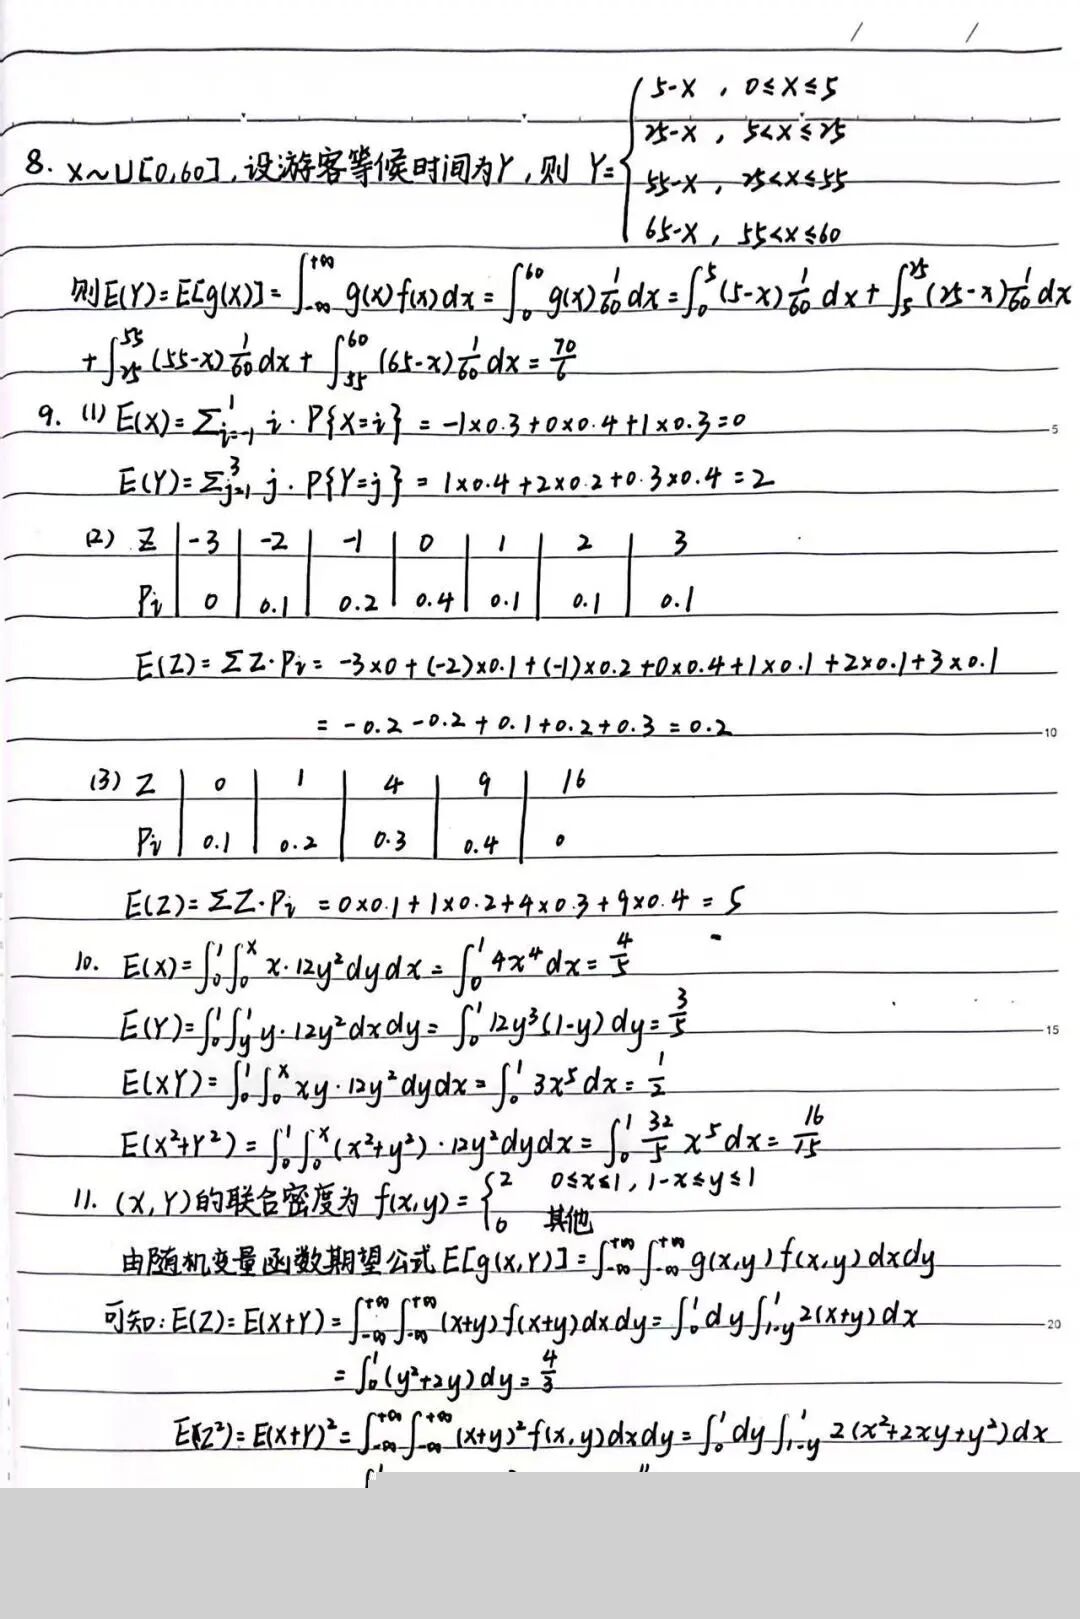 8. X~U[0,60],设游客等候时间为Y,则 Y={
5-X , 0≤X≤5
25-X , 5<X≤25
55-X , 25<X≤55
65-X , 55<X≤60
则E(Y)=E[g(X)]=∫_{-∞}^{+∞} g(x)f(x)dx=∫_0^{60} g(x)1/60 dx=∫_0^5(5-x)1/60 dx+∫_5^{25}(25-x)1/60 dx
+∫_{25}^{55}(55-x)1/60 dx+∫_{55}^{60}(65-x)1/60 dx=70/6
9. (1) E(X)=Σ_{i=-1}^1 i·P{X=i} = -1×0.3+0×0.4+1×0.3=0
E(Y)=Σ_{j=1}^3 j·P{Y=j} = 1×0.4+2×0.2+0.3×0.4=2
(2) Z | -3 | -2 | -1 | 0 | 1 | 2 | 3
Pi | 0 | 0.1 | 0.2 | 0.4 | 0.1 | 0.1 | 0.1
E(Z)=ΣZ·Pi= -3×0+(-2)×0.1+(-1)×0.2+0×0.4+1×0.1+2×0.1+3×0.1
= -0.2-0.2+0.1+0.2+0.3=0.2
(3) Z | 0 | 1 | 4 | 9 | 16
Pi | 0.1 | 0.2 | 0.3 | 0.4 | 0
E(Z)=ΣZ·Pi =0×0.1+1×0.2+4×0.3+9×0.4=5
10. E(X)=∫_0^1∫_0^x x·12y²dydx=∫_0^1 4x⁴dx=4/5
E(Y)=∫_0^1∫_y^1 y·12y²dxdy=∫_0^1 12y³(1-y)dy=3/5
E(XY)=∫_0^1∫_0^x xy·12y²dydx=∫_0^1 3x⁵dx=1/2
E(X²+Y²)=∫_0^1∫_0^x(x²+y²)·12y²dydx=∫_0^1 32/5 x⁵dx=16/15
11. (X,Y)的联合密度为 f(x,y)={2 0≤x≤1,1-x≤y≤1
0 其他
由随机变量函数期望公式E[g(X,Y)]=∫_{-∞}^{+∞}∫_{-∞}^{+∞} g(x,y)f(x,y)dxdy
可知:E(Z)=E(X+Y)=∫_{-∞}^{+∞}∫_{-∞}^{+∞}(x+y)f(x+y)dxdy=∫_0^1dy∫_{1-y}^1 2(x+y)dx
=∫_0^1(y²+2y)dy=4/3
E(Z²)=E(X+Y)²=∫_{-∞}^{+∞}∫_{-∞}^{+∞}(x+y)²f(x,y)dxdy=∫_0^1dy∫_{1-y}^1 2(x²+2xy+y²)dx
5
10
15
20